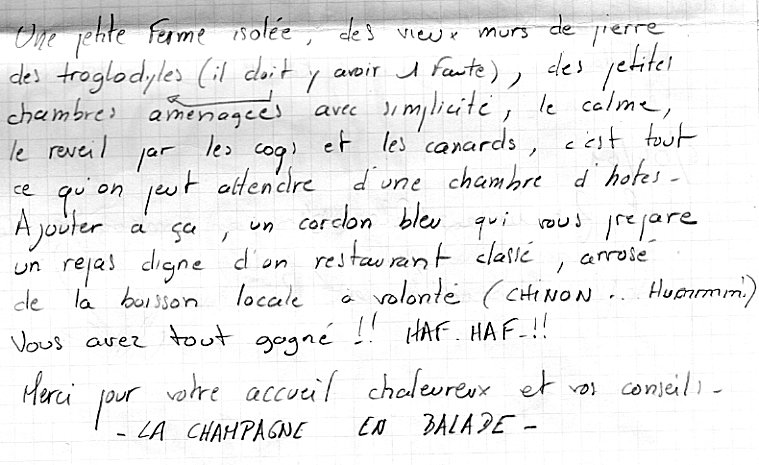 Une petite Ferme isolée, des vieux murs de pierre
des troglodyles (il doit y avoir 1 Faute), des petites
chambres aménagées avec simplicité, le calme,
le reveil par les coqs et les canards, c'est tout
ce qu'on peut attendre d'une chambre d'hotes -
Ajouter a ça, un cordon bleu qui vous prepare
un repas digne d'un restaurant classé, arrosé
de la boisson locale a volonté (CHINON .. Hummmm!)
Vous avez tout gagné !! HAF. HAF-!!
Merci pour votre accueil chaleureux et vos conseils -
- LA CHAMPAGNE EN BALADE -